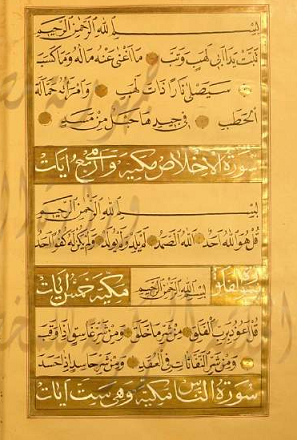 بسم الله الرحمن الرحيم
تبت يدا ابي لهب وتب ما اغنى عنه ماله وما كسب
سيصلى نارا ذات لهب وامراته حمالة
الحطب في جيدها حبل من مسد
سورة الاخلاص مكية وهي اربع ايات
بسم الله الرحمن الرحيم
قل هو الله احد الله الصمد لم يلد ولم يولد ولم يكن له كفوا احد
سورة الفلق بسم الله الرحمن الرحيم مكية خمس ايات
قل اعوذ برب الفلق من شر ما خلق ومن شر غاسق اذا وقب
ومن شر النفاثات في العقد ومن شر حاسد اذا حسد
سورة الناس مكية وهي ست ايات